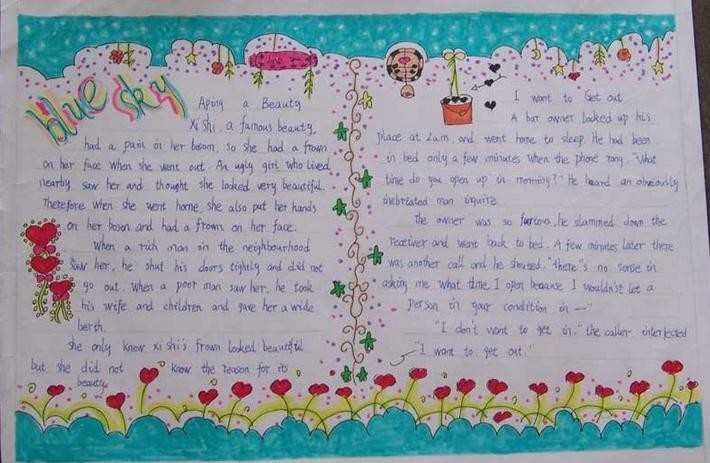 blue sky
Aping a Beauty
Xi shi, a famous beauty,
had a pain in her bosom, so she had a frown
on her face when she went out. An ugly girl who lived
nearby saw her and thought she looked very beautiful.
Therefore when she went home, she also put her hands
on her bosom and had a frown on her face.
When a rich man in the neighbourhood
saw her, he shut his doors tightly and did not
go out. When a poor man saw her, he took
his wife and children and gave her a wide
berth.
she only knew xi shi's frown looked beautiful
but she did not know the reason for its
beauty
I want to Get out
A bar owner locked up his
place at 2a.m. and went home to sleep. He had been
in bed only a few minutes when the phone rang. "What
time do you open up in morning?" He heard an obviously
inebriated man inquire.
The owner was so furious, he slammed down the
receiver and went back to bed. A few minutes later there
was another call and he shouted, "there's no sense in
asking me what time I open because I wouldn't let a
person in your condition in —"
"I don't want to get in," the caller interjected
"I want to get out."